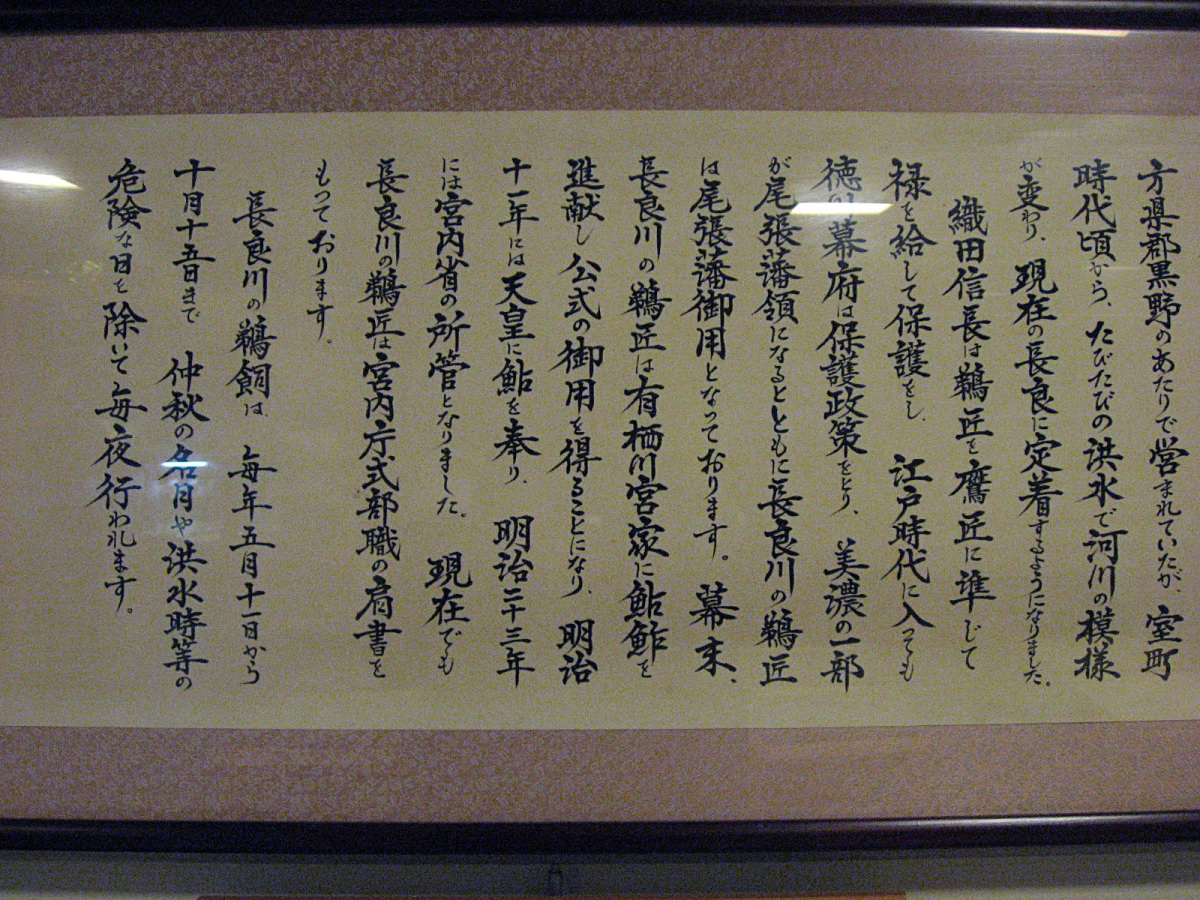 方県郡黒野のあたりで営まれていたが、室町
時代頃から、たびたびの洪水で河川の模様
が変わり、現在の長良に定着するようになりました。
織田信長は鵜匠を鷹匠に準じて
禄を給して保護をし、江戸時代に入っても
徳川幕府は保護政策をとり、美濃の一部
が尾張藩領になるとともに長良川の鵜匠
は尾張藩御用となっております。幕末、
長良川の鵜匠は有栖川宮家に鮎鮓を
進献し公式の御用を得ることになり、明治
十一年には天皇に鮎を奉り、明治二十三年
には宮内省の所管となりました。現在でも
長良川の鵜匠は宮内庁式部職の肩書を
もっております。
長良川の鵜飼は、毎年五月十一日から
十月十五日まで 仲秋の名月や洪水時等の
危険な日を除いて毎夜行われます。